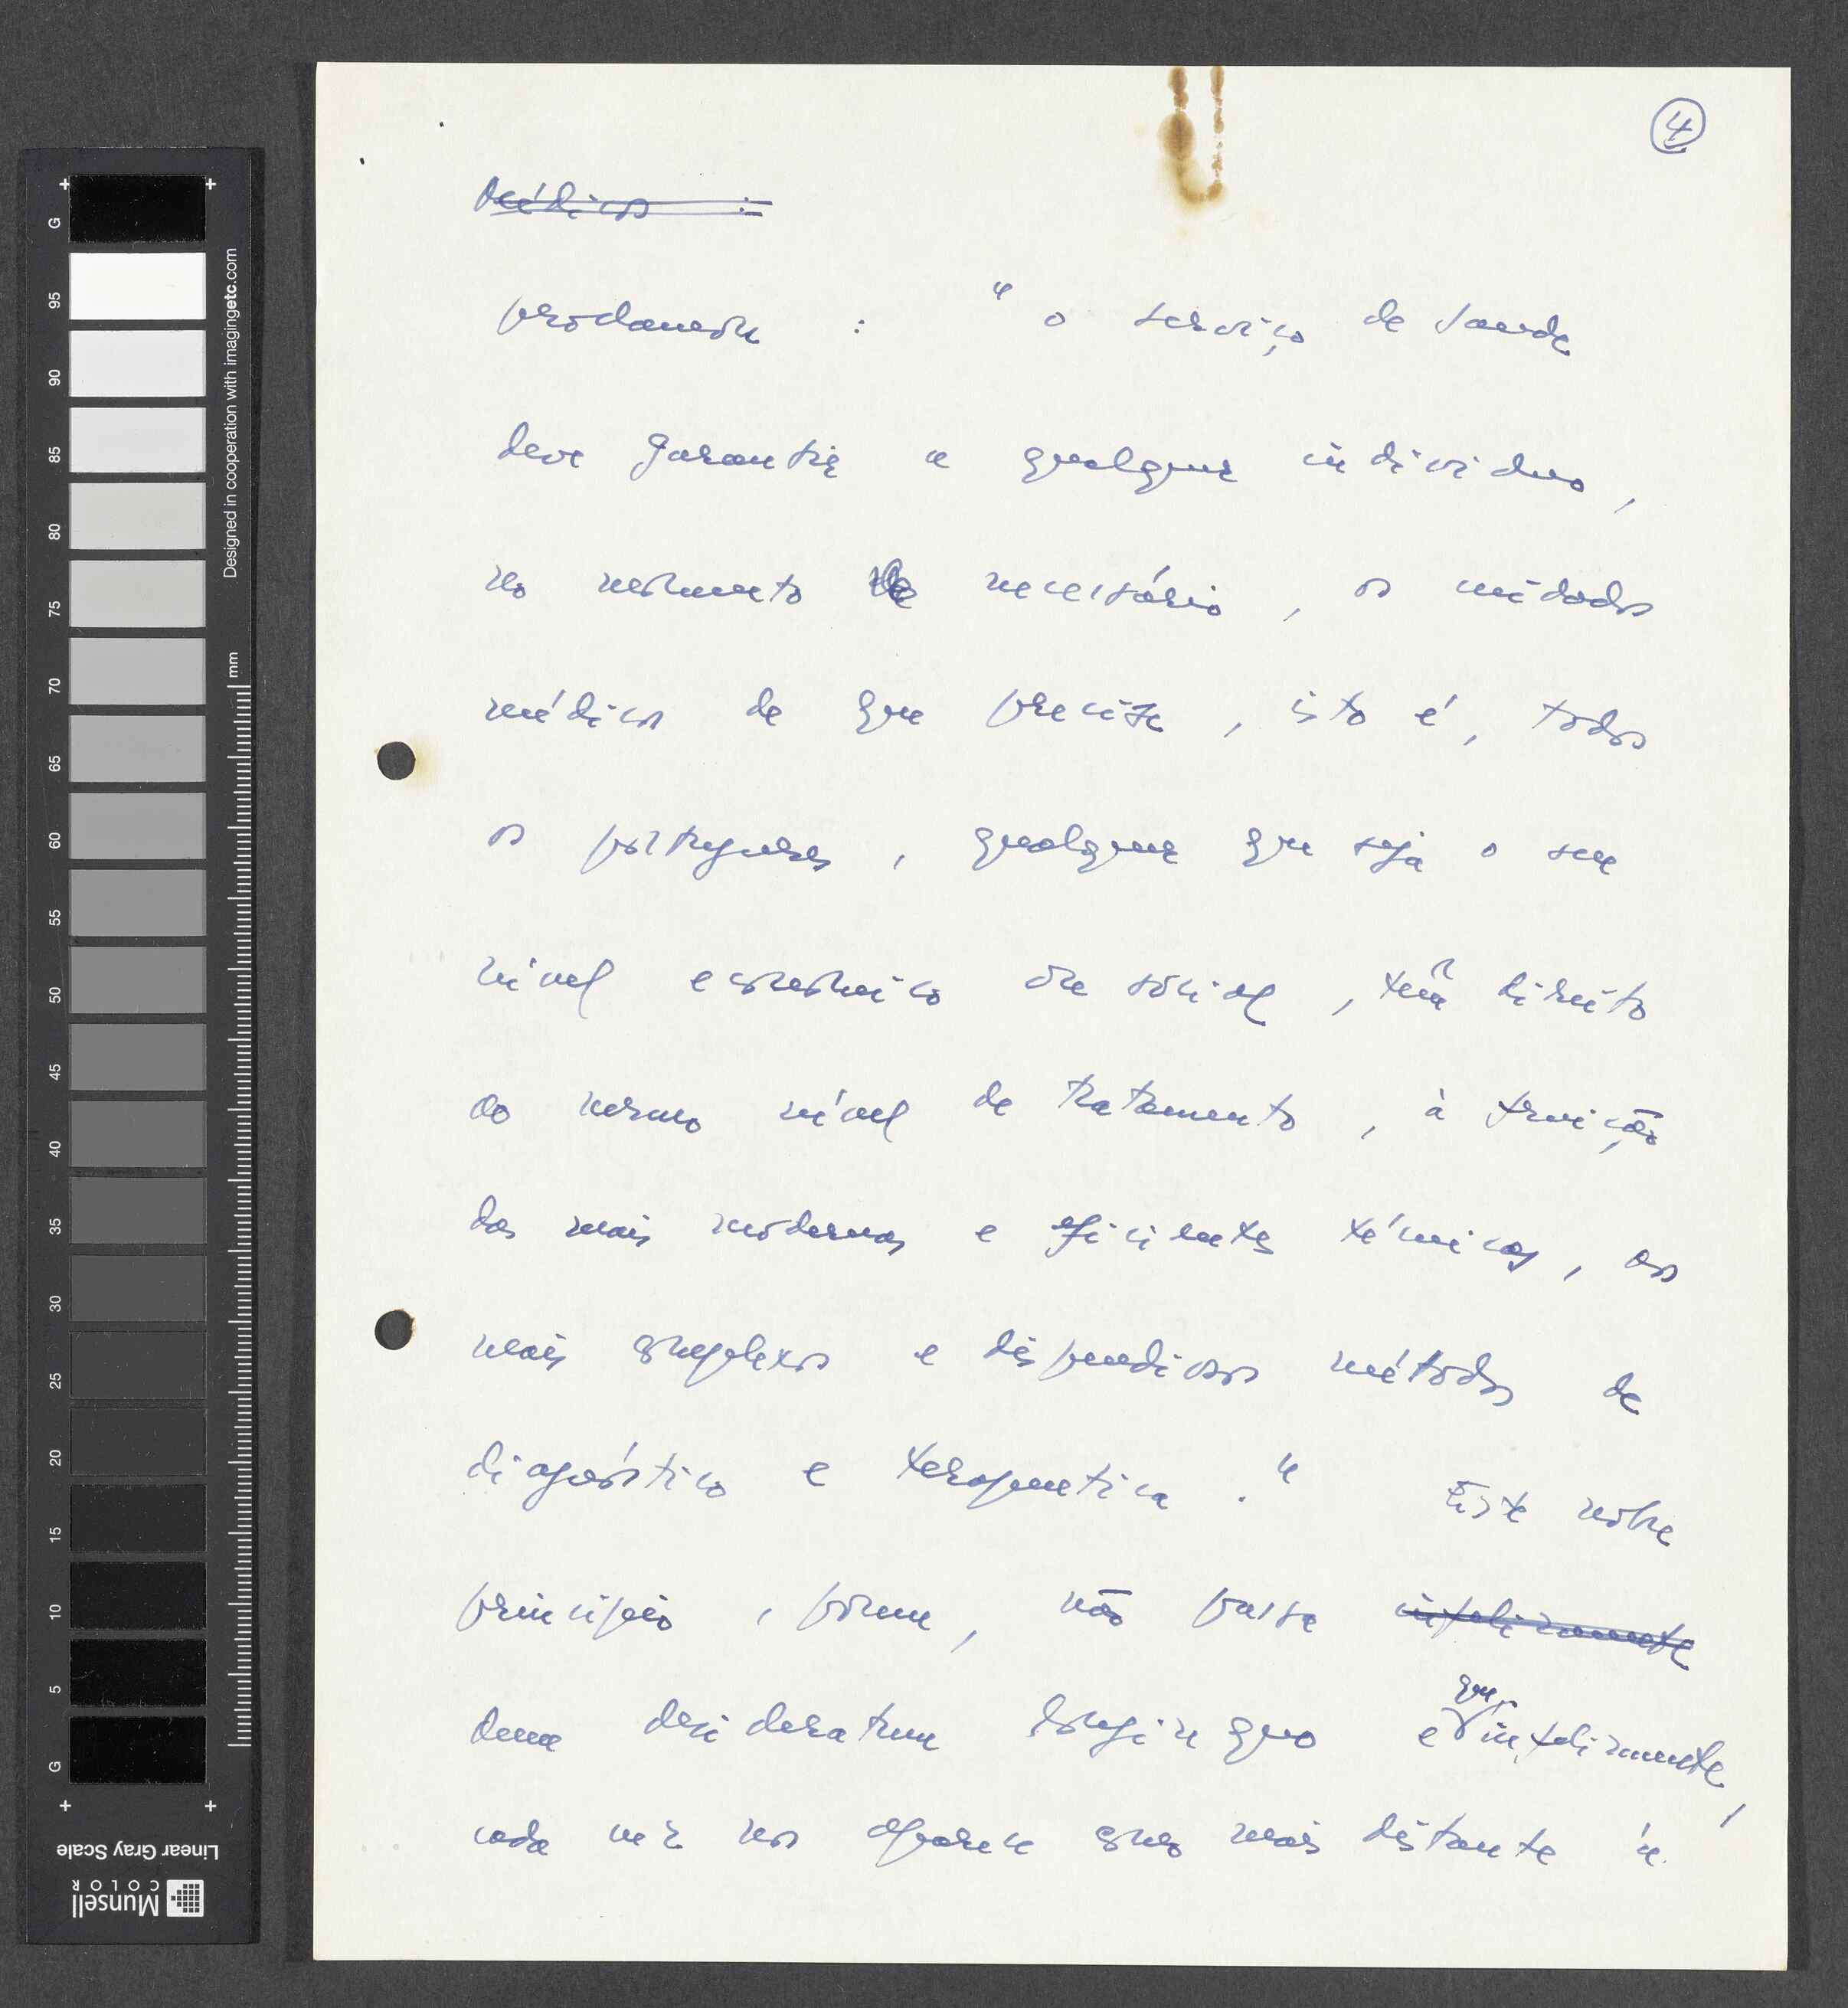 4
~~Médicos :~~
proclamou : " o serviço de saude
deve garantir a qualquer individuo,
no momento necessário, os cuidados
médicos de que precise, isto é, todos
os portugueses, qualquer que seja o seu
nivel economico ou social, têm direito
ao mesmo nível de tratamento, à fruição
das mais modernas e eficientes técnicas, aos
mais complexos e dispendiosos métodos de
diagnóstico e terapeutica ." Este nobre
principio, porem, não passa ~~infelizmente~~
dum desideratum longinquo e que infelizmente,
cada vez nos aparece como mais distante e
G 95 90 85 80 75 70 65 60 55 50 45 40 35 30 25 20 15 10 5 G
Designed in cooperation with imagingetc.com
mm
Linear Gray Scale
Munsell
COLOR